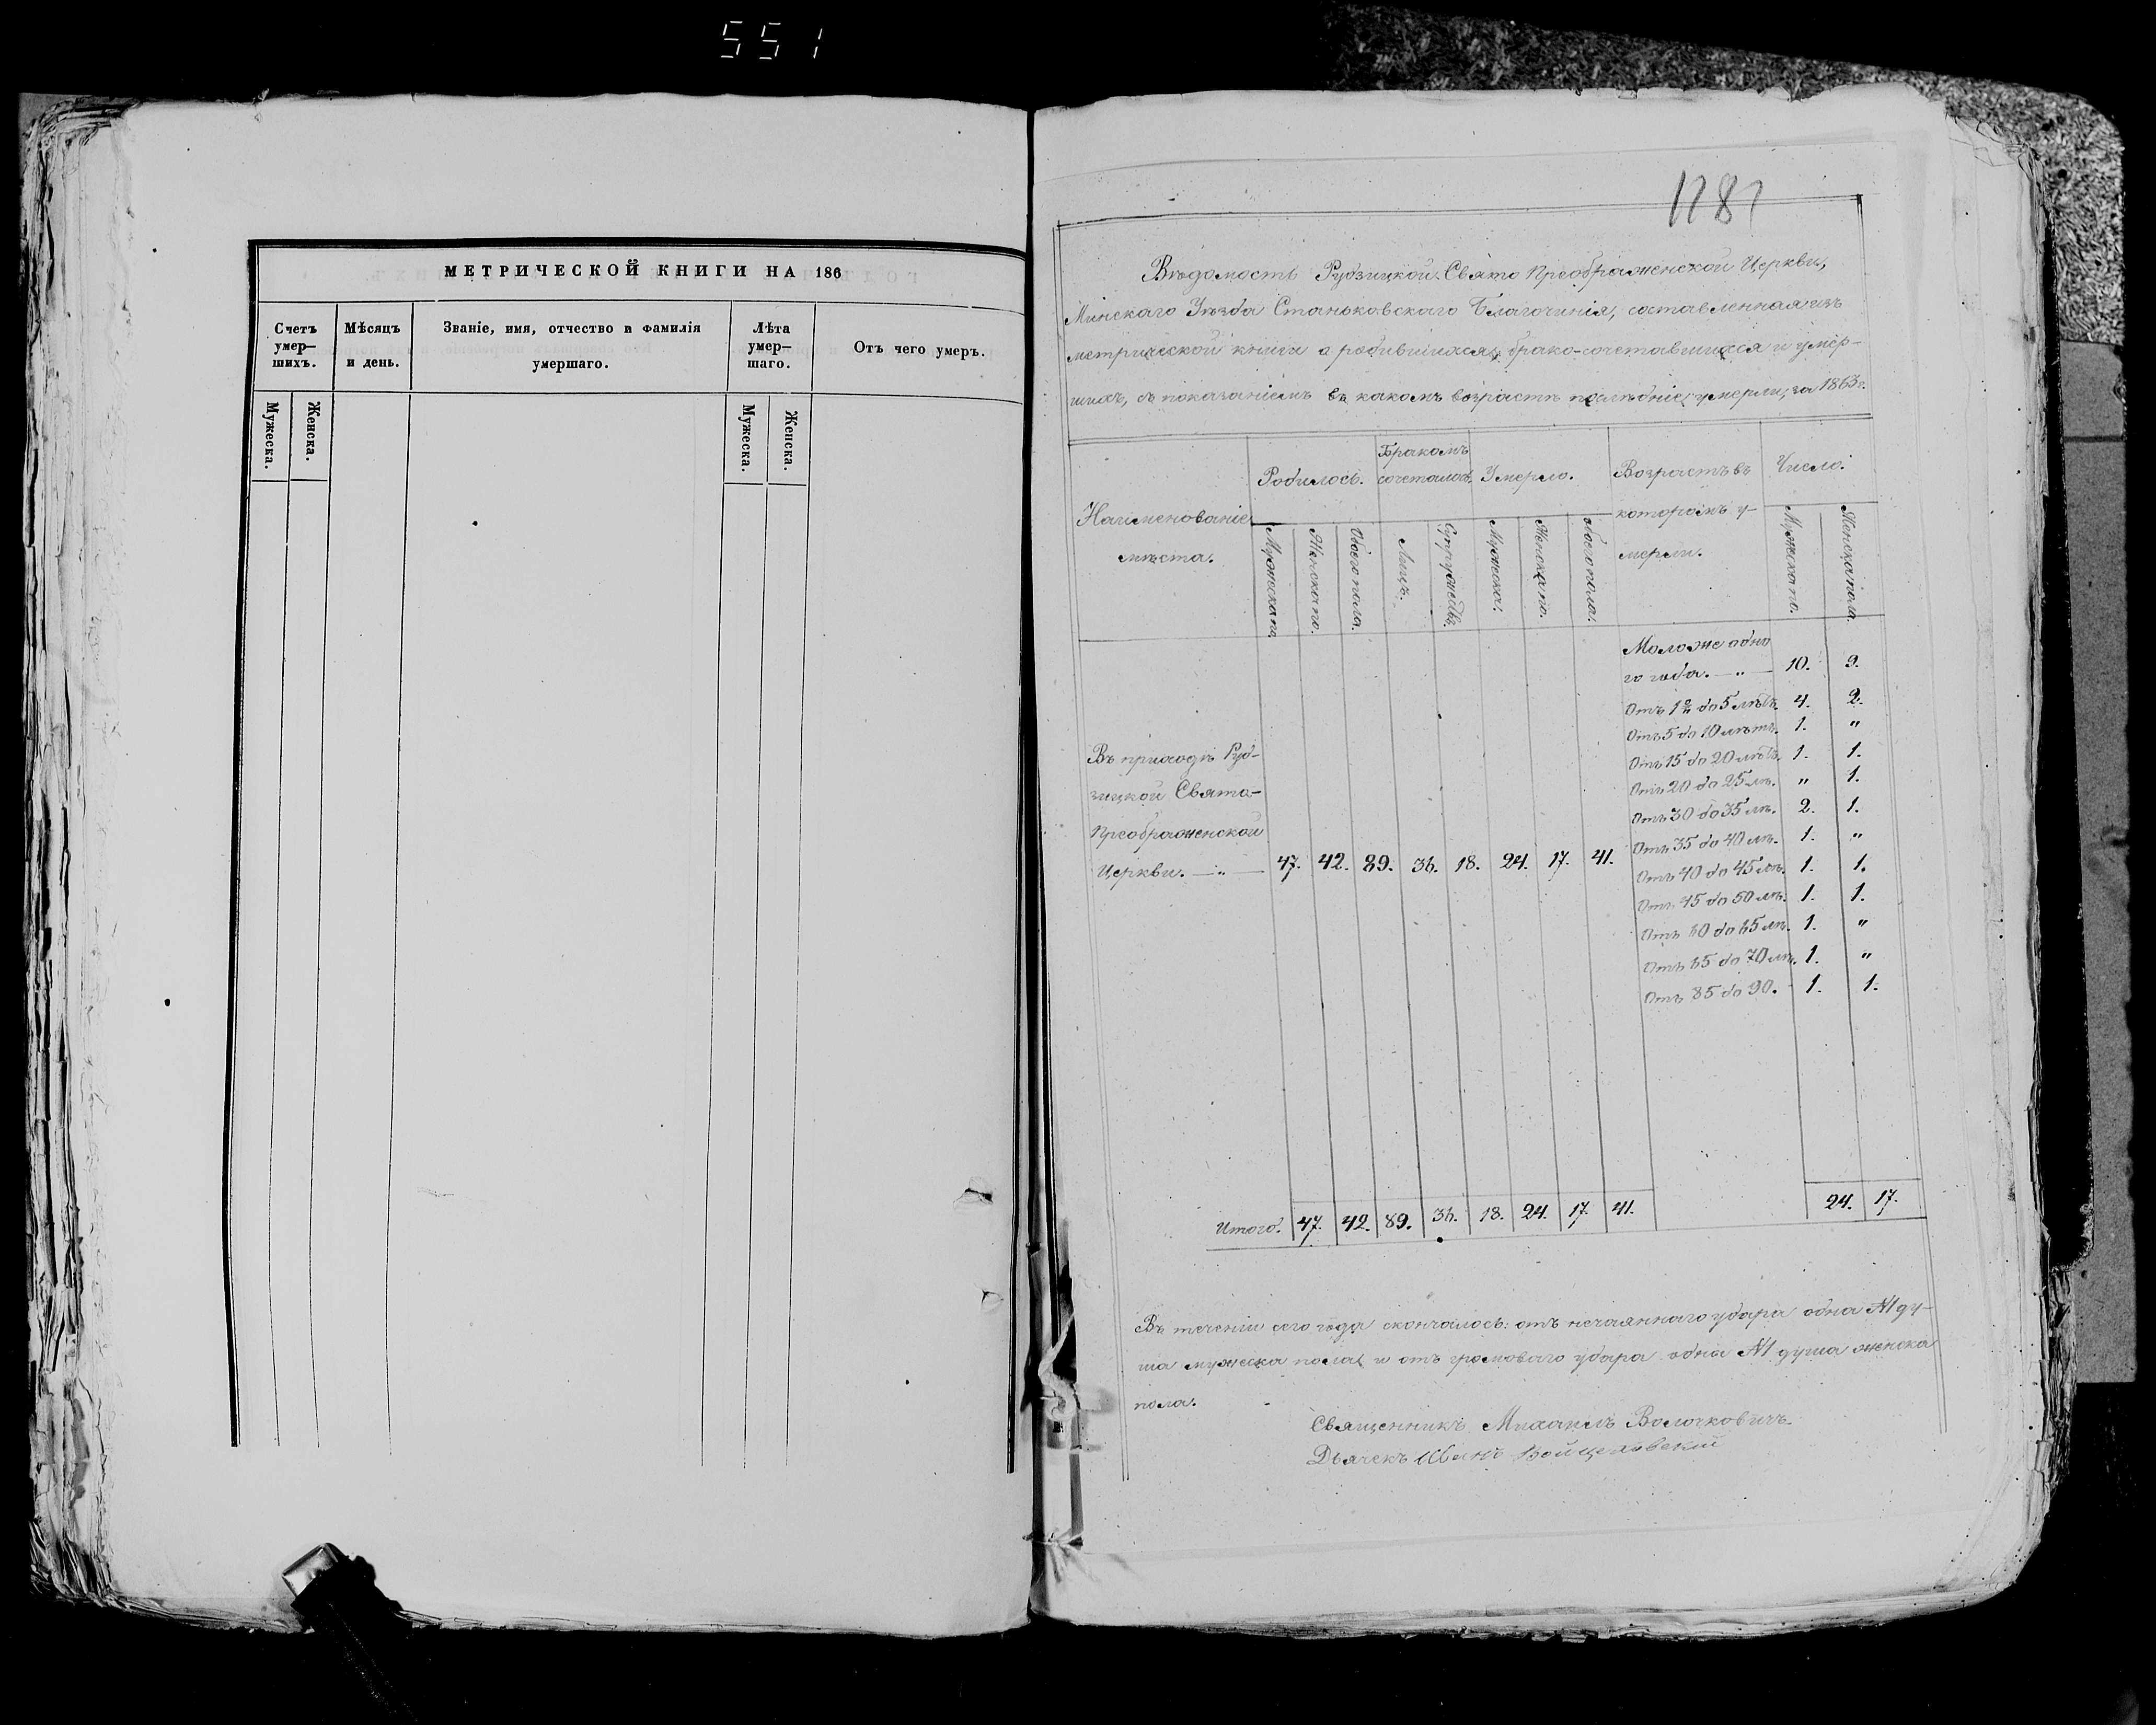 551
МЕТРИЧЕСКОЙ КНИГИ НА 186
Счетъ умер—шихъ.
Мѣсяцъ и день.
Званіе, имя, отчество и фамилія умершаго.
Лѣта умер—шаго.
Отъ чего умеръ.
Мужеска.
Женска.
Мужеска.
Женска.
Вѣдомость Рубзицкой Свято Преображенской Церкви,
Минскаго Уѣзда Станьковскаго Благочинія, составленная изъ
метрической книги о родившихся, брако-сочетавшихся и умер-
шихъ, съ показаніемъ въ какомъ возрастѣ послѣдніе умерли, за 1863 г.
Наименованіе мѣста.
Родилось.
Бракомъ сочеталось.
Умерло.
Возрастъ въ которомъ у-мерли.
Число.
Мужеска по.
Женска по.
Обоего пола.
Лицъ.
Супружествъ.
Мужеска.
Женска по.
Обоего пола.
Мужеска по.
Женска пола.
Въ приходѣ Руб-
зицкой Свято-
Преображенской
Церкви. —„— 47. 42. 89. 36. 18. 24. 17. 41.
Моложе одно
го года. —„— 10. 9.
Отъ 1го до 5 лѣтъ. 4. 2.
Отъ 5 до 10 лѣтъ. 1. „
Отъ 15 до 20 лѣтъ. 1. 1.
Отъ 20 до 25 лѣ. „ 1.
Отъ 30 до 35 лѣ. 2. 1.
Отъ 35 до 40 лѣ. 1. „
Отъ 40 до 45 лѣ. 1. 1.
Отъ 45 до 50 лѣ. 1. 1.
Отъ 60 до 65 лѣ. 1. „
Отъ 65 до 70 лѣ. 1. „
Отъ 85 до 90. 1. 1.
Итого. 47. 42. 89. 36. 18. 24. 17. 41. 24. 17.
Въ теченіи сего года скончалось: отъ нечаяннаго удара одна №1 ду-
ша мужеска пола, и отъ громоваго удара одна №1 душа женска
пола.
Священникъ Михаилъ Волочковичъ
Дьячекъ Иванъ Войцеховскій